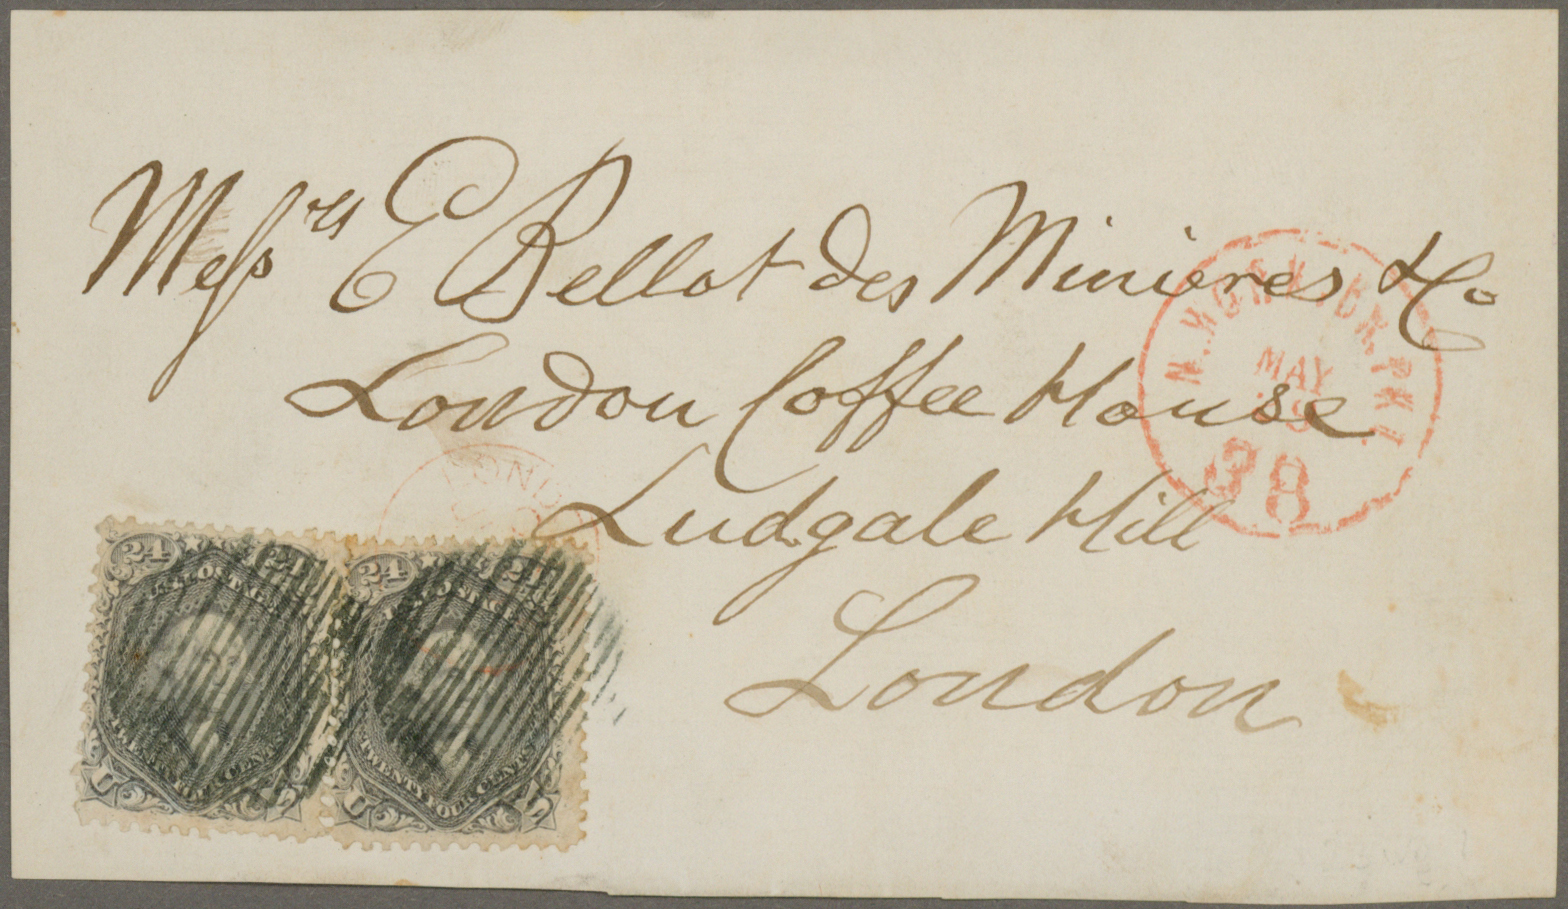 Messrs E Bellot des Minieres & Co
London Coffee House
Ludgate Hill
London
N. YORK AM. PKT.
MAY
38
LOND
24 24
U.S. POSTAGE
TWENTY FOUR CENTS
U S
24 24
U.S. POSTAGE
TWENTY FOUR CENTS
U S